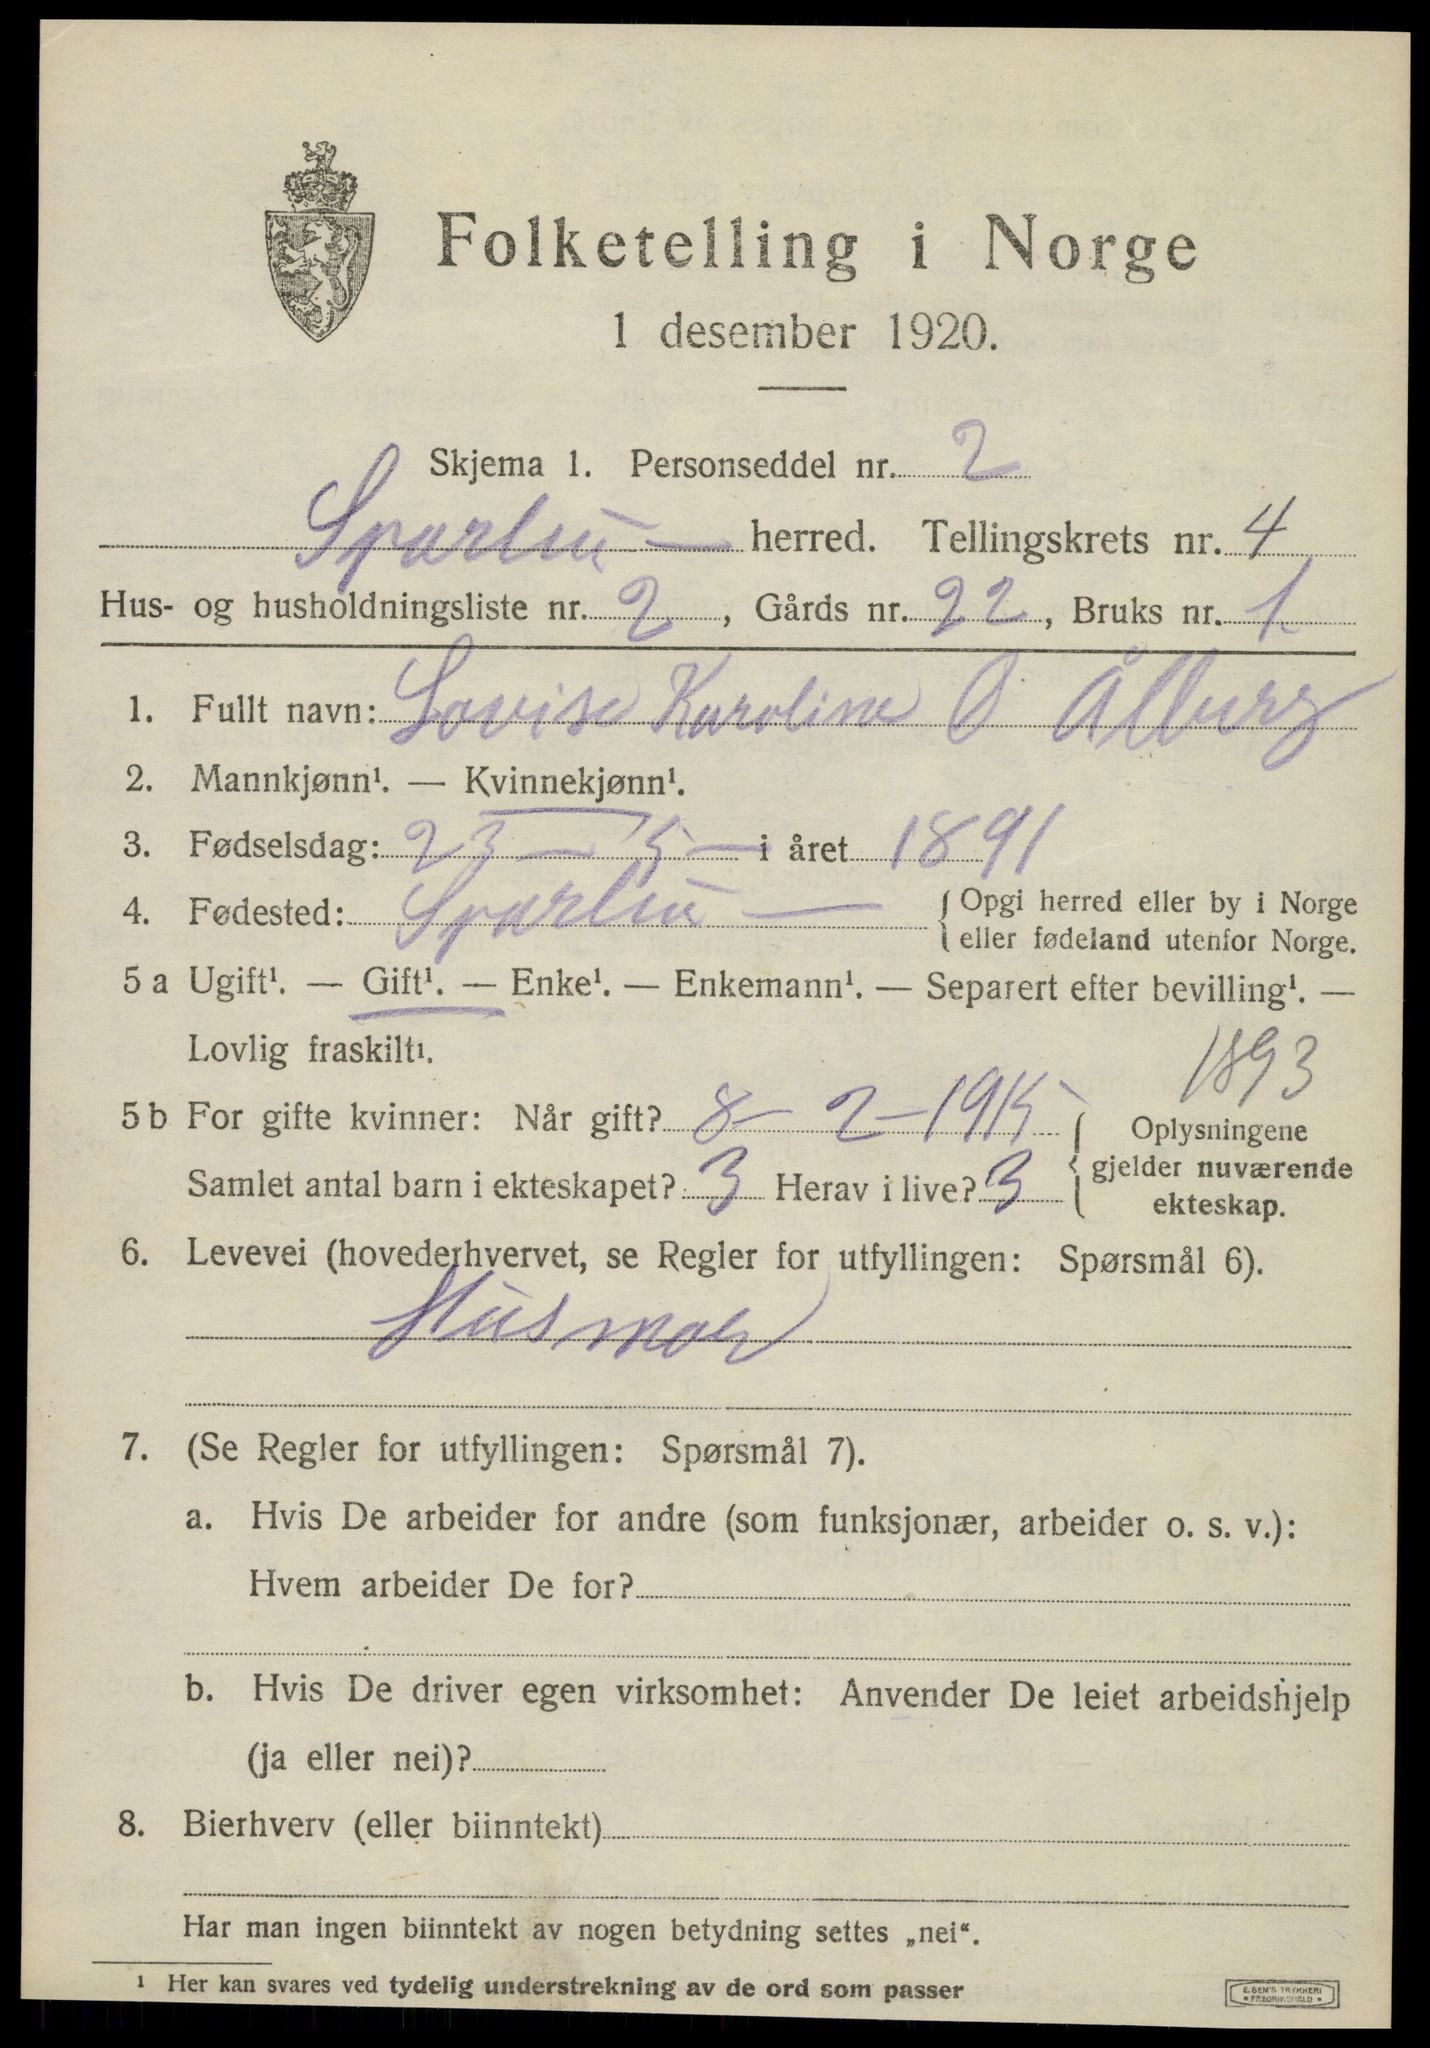 Folketelling i Norge
1 desember 1920.
Skjema 1. Personseddel nr. 2
Sparbu herred. Tellingskrets nr. 4
Hus- og husholdningsliste nr. 2, Gårds nr. 22, Bruks nr. 1.
1. Fullt navn: Lovise Karoline O Ålburg
2. Mannkjønn¹. — Kvinnekjønn¹.
3. Fødselsdag: 23 — 5 — i året 1891
4. Fødested: Sparbu — { Opgi herred eller by i Norge
eller fødeland utenfor Norge.
5 a Ugift¹. — Gift¹. — Enke¹. — Enkemann¹. — Separert efter bevilling¹. —
Lovlig fraskilt¹.
1893
5 b For gifte kvinner: Når gift? 8 – 2 – 1915 { Oplysningene
gjelder nuværende
Samlet antal barn i ekteskapet? 3 Herav i live? 3
ekteskap.
6. Levevei (hovederhvervet, se Regler for utfyllingen: Spørsmål 6).
Husmor
7. (Se Regler for utfyllingen: Spørsmål 7).
a. Hvis De arbeider for andre (som funksjonær, arbeider o. s. v.):
Hvem arbeider De for?
b. Hvis De driver egen virksomhet: Anvender De leiet arbeidshjelp
(ja eller nei)?
8. Bierhverv (eller biinntekt)
Har man ingen biinntekt av nogen betydning settes „nei“.
¹ Her kan svares ved tydelig understrekning av de ord som passer
E. SEM'S TRYKKERI
• FREDRIKSHALD •